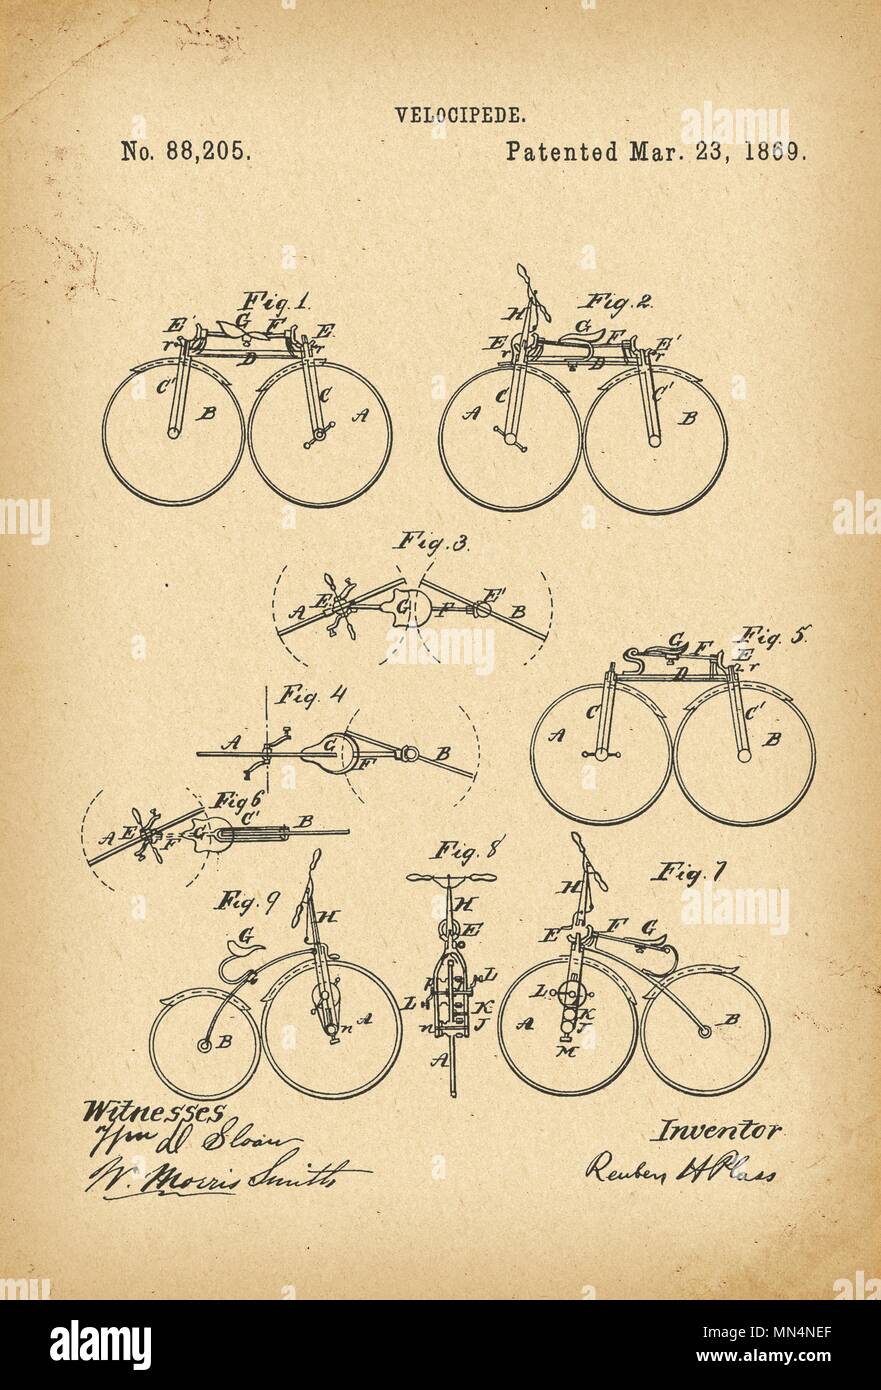 VELOCIPEDE.
No. 88,205.
Patented Mar. 23, 1869.
Fig. 1.
E' G F E
r D r
C' B C A
Fig. 2.
H G F
E r D E' r
A C C' B
Fig. 3.
A E G F E' B
Fig. 4
A G F B
Fig. 5.
G F E
D r
A C C' B
Fig 6
A E F G C' B
Fig. 7
H E F G
L K J
A M B
Fig. 8
H
E
P L
L K
n J
A
Fig. 9
G H
B n A
Witnesses
Wm D Sloan
W. Morris Smith
Inventor
Reuben H Plass
alamy
Image ID: MN4NEF
www.alamy.com